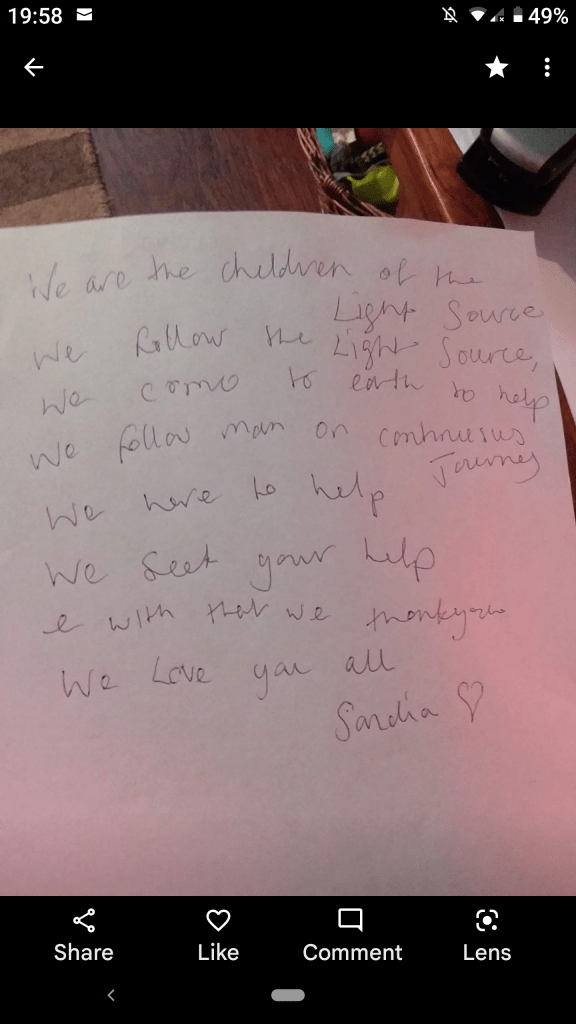 19:58
49%
We are the children of the
Light Source
We follow the Light Source,
We come to earth to help
We follow man on continuesus
Journey
We here to help
We seek your help
e with that we thankyou
We Love you all
Sandia ♡
Share Like Comment Lens